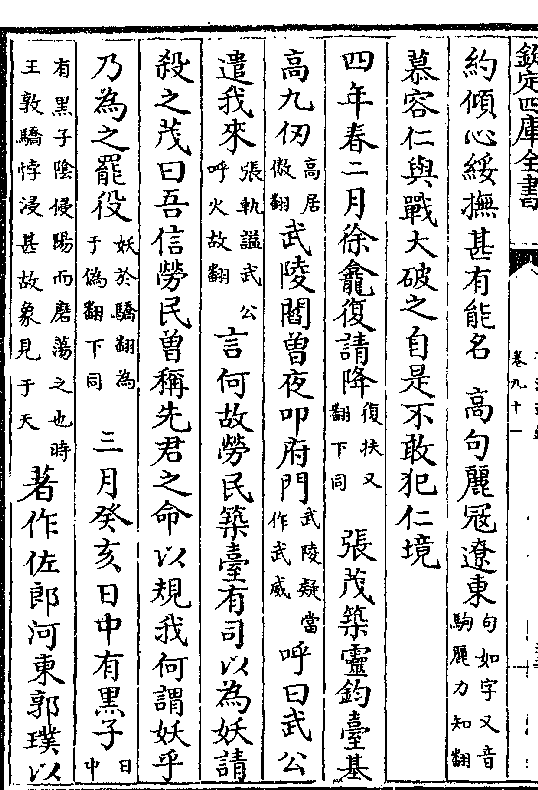 欽定四庫全書
卷九十一
約傾心綏撫甚有能名　高句麗冠遼東句如字又音駒麗力知翻
慕容仁與戰大破之自是不敢犯仁境
四年春二月徐龕復請降復扶又翻下同　張茂築靈鈞臺基
高九仞高居傲翻武陵閻曽夜叩府門武陵疑當作武威呼曰武公
遣我來張軌諡武公呼火故翻言何故勞民築臺有司以為妖請
殺之茂曰吾信勞民曽稱先君之命以規我何謂妖乎
乃為之罷役妖於驕翻為于偽翻下同　三月癸亥日中有黒子日中
有黒子陰侵陽而磨蕩之也時王敦驕悖浸甚故象見于天著作佐郎河東郭璞以